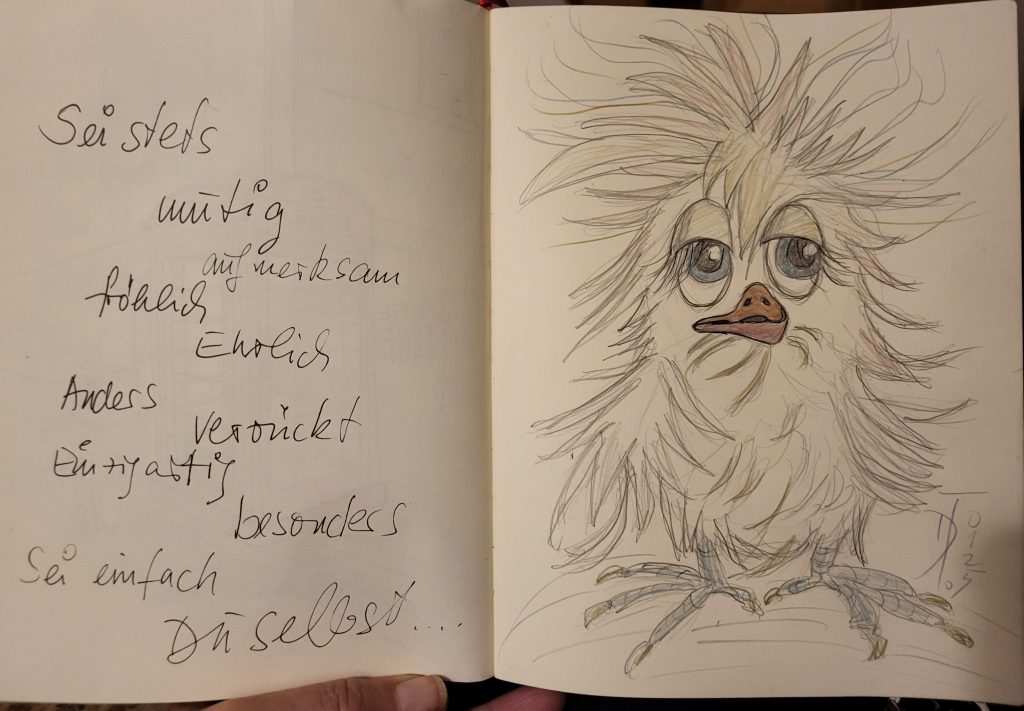 Sei stets
mutig
aufmerksam
fröhlich
Ehrlich
Anders
verrückt
Einzigartig
besonders
Sei einfach
Du selbst....